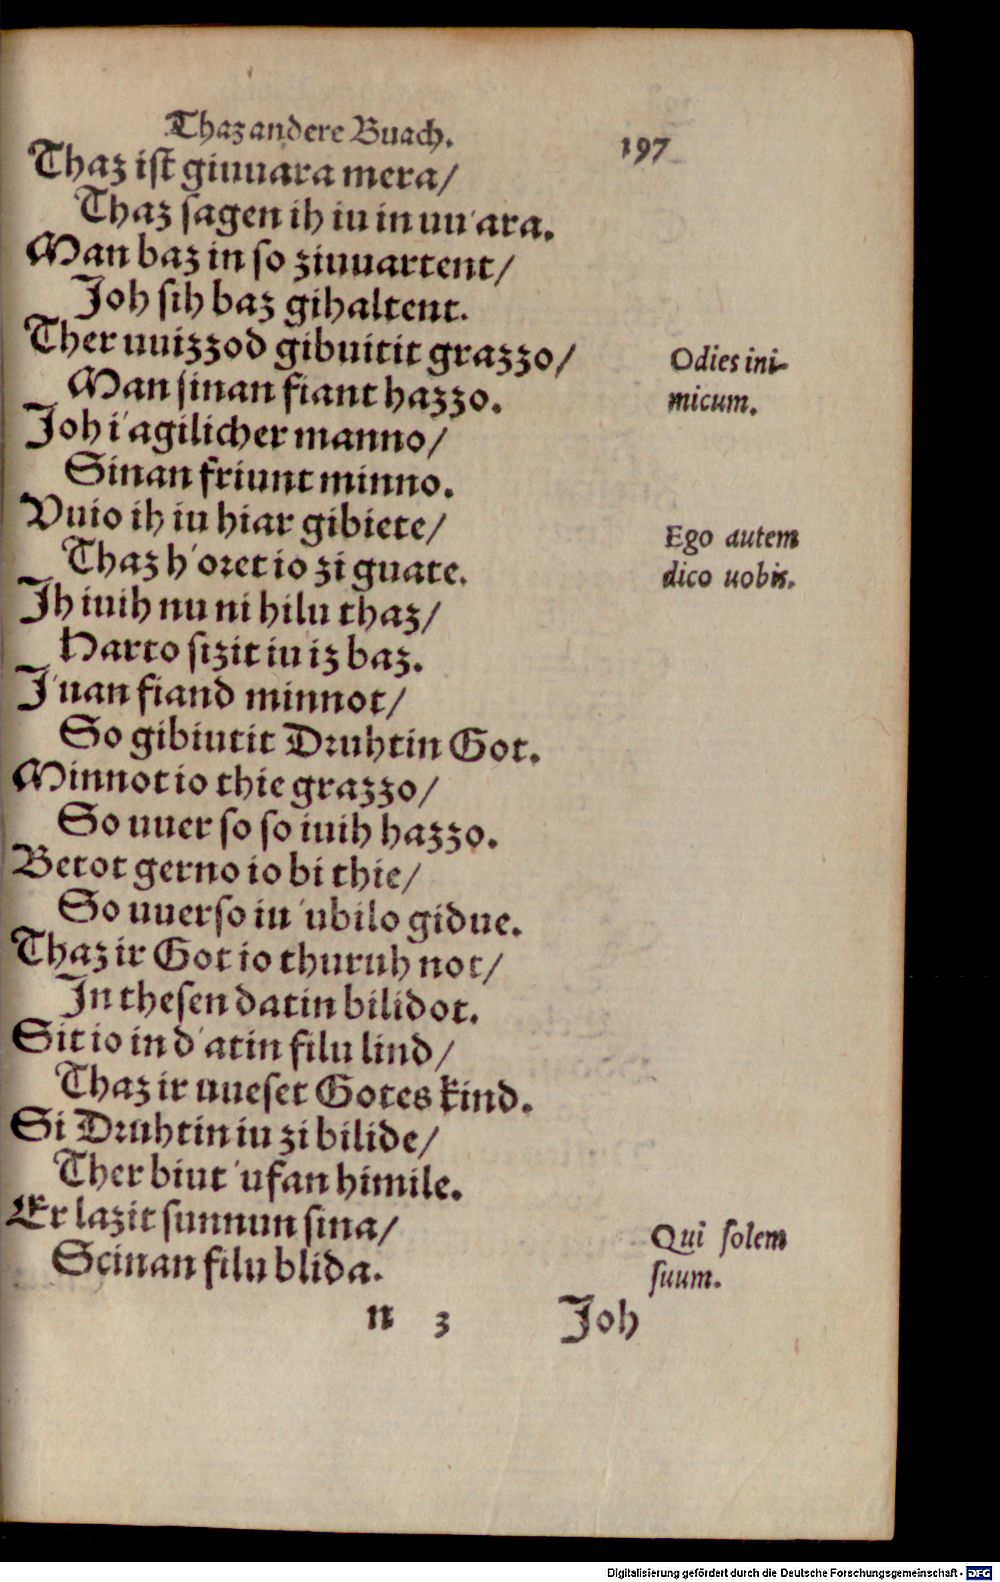 Thaz andere Buach. 197
Thaz ist giuuara mera/
Thaz sagen ih iu in uu'ara.
Man baz in so ziuuartent/
Joh sih baz gihaltent.
Ther uuizzod gibuitit grazzo/
Man sinan fiant hazzo.
Odies ini-
micum.
Joh i'agilicher manno/
Sinan friunt minno.
Vuio ih iu hiar gibiete/
Thaz h'oret io zi guate.
Ego autem
dico uobis.
Jh iuih nu ni hilu thaz/
Harto sizit iu iz baz.
J'uan fiand minnot/
So gibiutit Druhtin Got.
Minnot io thie grazzo/
So uuer so so iuih hazzo.
Betot gerno io bi thie/
So uuerso iu 'ubilo gidue.
Thaz ir Got io thuruh not/
Jn thesen datin bilidot.
Sit io in d'atin filu lind/
Thaz ir uueset Gotes kind.
Si Druhtin iu zi bilide/
Ther biut 'ufan himile.
Er lazit sunnun sina/
Scinan filu blida.
Qui solem
suum.
n 3 Joh
Digitalisierung gefördert durch die Deutsche Forschungsgemeinschaft - DFG